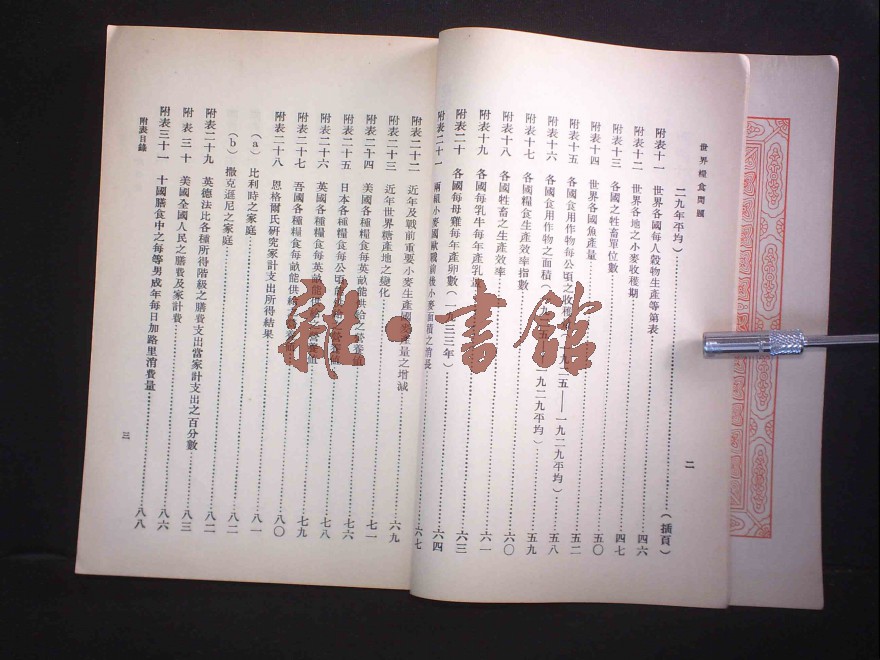 世界糧食問題
二
二九年平均)……(插頁)
附表十一 世界各國每人穀物生產等第表……四六
附表十二 世界各地之小麥收穫期……四七
附表十三 各國之牲畜單位數……五〇
附表十四 世界各國魚產量……五二
附表十五 各國食用作物每公頃之收穫 一九二五——一九二九平均)……五八
附表十六 各國食用作物之面積(一九二五 一九二九平均)……五九
附表十七 各國糧食生產效率指數……六〇
附表十八 各國牲畜之生產效率……六一
附表十九 各國每乳牛每年產乳……六三
附表二十 各國每母雞每年產卵數(一九三三年)……六四
附表二十一 兩組小麥國歐戰前後小麥面積之消長……六七
附表二十二 近年及戰前重要小麥生產國 產量之增減……六九
附表二十三 近年世界糖產地之變化……七一
附表二十四 美國各種糧食每英畝能供給之 
附表二十五 日本各種糧食每公頃……七六
附表二十六 英國各種糧食每英畝能供……七八
附表二十七 吾國各種糧食每畝能供給……七九
附表二十八 恩格爾氏研究家計支出所得結果……八〇
(a) 比利時之家庭……八一
(b) 撒克遜尼之家庭……八二
附表二十九 英德法比各種所得階級之膳費支出當家計支出之百分數……八二
附表三十 美國全國人民之膳費及家計費……八三
附表三十一 十國膳食中之每等男成年每日加路里消費量……八六
八八
附表目錄
三
雜·書館